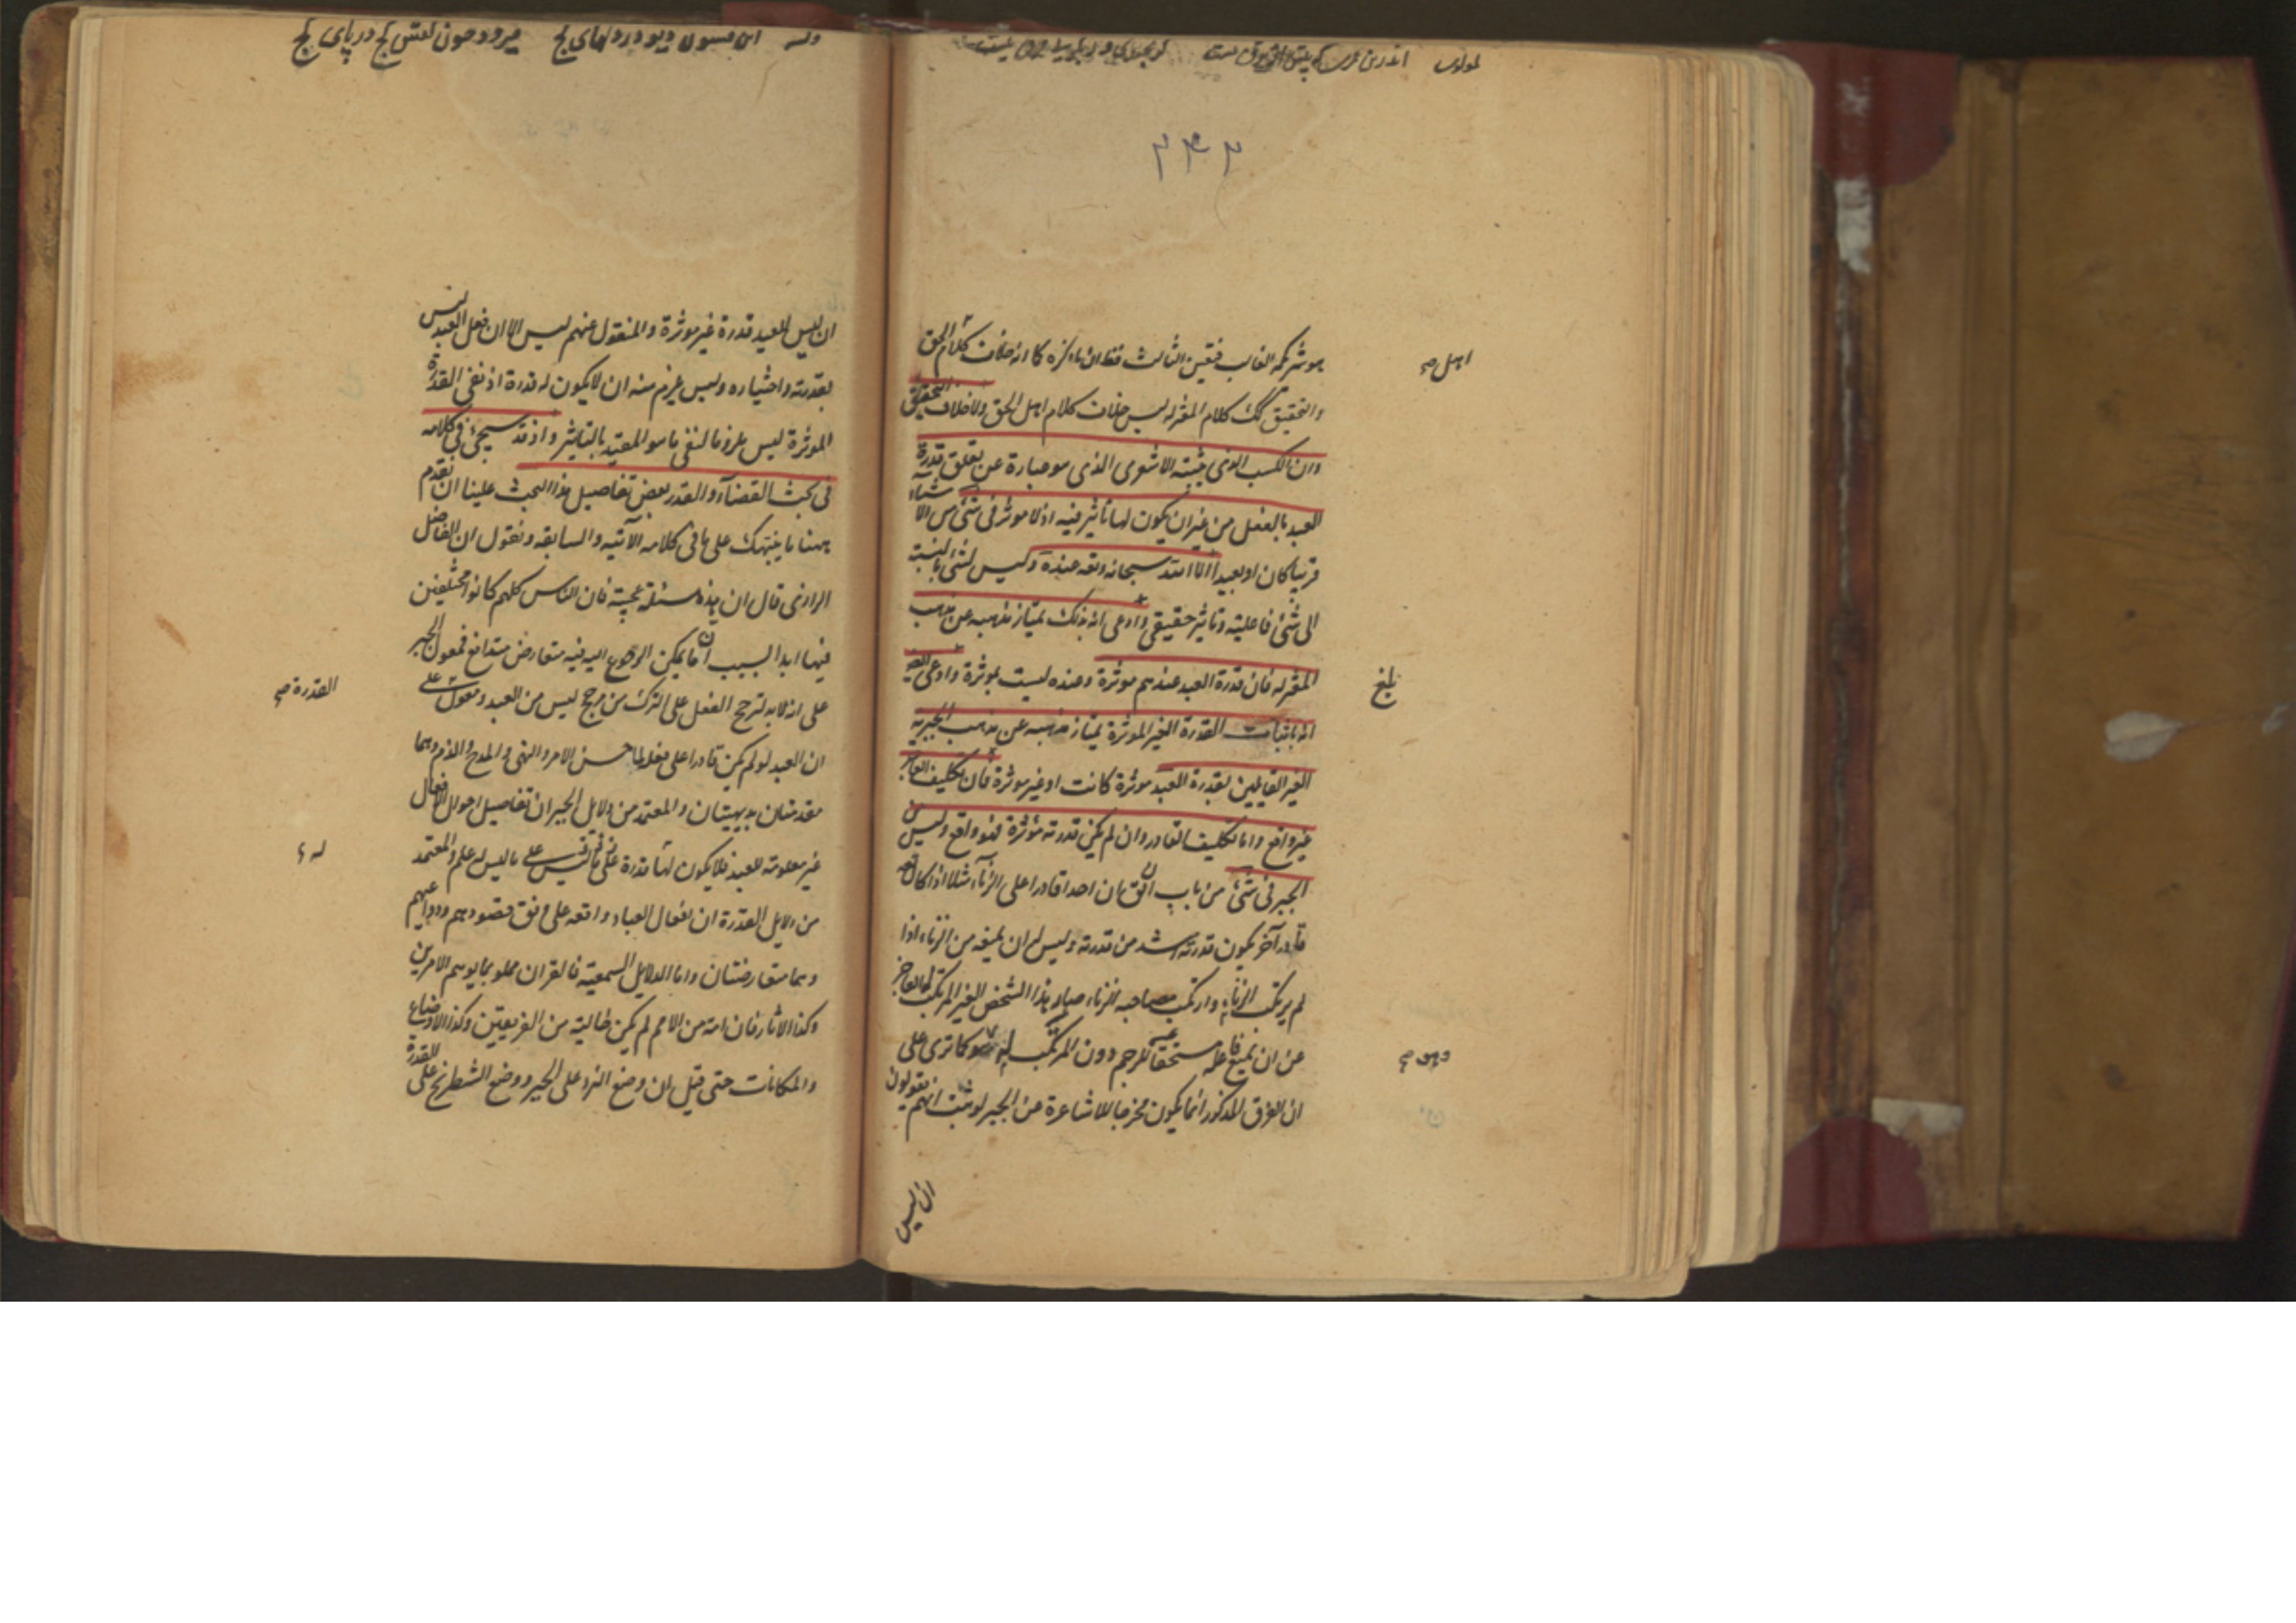 ۳۴۳
كلام الحق
اهل صح
والتحقيق كلام المعتزله ليس خلاف كلام اهل الحق ولا خلاف التحقيق
وان الكسب الذى يثبته الاشعرى الذى هو عبارة عن تعلق قدرة
العبد بالفعل من غير ان يكون لها تأثير فيه اذ لا موثر فى شئ من الاشياء
قريبا كان او بعيدا الا الله سبحانه وتعه عنده وليس لشئ بالنسبته
الى شئ فاعلية وتاثير حقيقى وادعى انه بذلك يمتاز مذهبه عن مذهب
المعتزله فان قدرة العبد عندهم موثرة وعنده ليست بموثرة وادعى
بلغ
انه باثبات القدرة الغير الموثرة يمتاز مذهبه عن مذهب الجبريه
الغير القايلين بقدرة العبد موثرة كانت او غير موثرة فان تكليف العاجز
غير واقع واما تكليف القادر وان لم يكن قدرته مؤثرة فهو واقع وليس
الجبر فى شئ من باب فان احدا قادرا على الزناء مثلا اذا كان
قادر آخر يكون قدرته اشد من قدرته وليس له ان يمنعه من الزناء اذا
لم يرتكب الزناء وارتكب صاحبه الزناء صار هذا الشخص الغير المرتكب العاجز
عن ان يمنع مستحقا للرجم دون المرتكب له كما ترى على
وهو صح
ان الفرق المذكور انما يكون مخرجا للاشاعرة من الجبر لو ثبت انهم يقولون
ان ليس
ان ليس للعبد قدرة غير موثرة والمنقول عنهم ليس الا ان فعل العبد ليس
بقدرته واختياره وليس يلزم منه ان لا يكون له قدرة اذ نفى القدرة
الموثرة ليس ملزوما لنفى ما سوا المقيد بالتاثير واذ قد سيجئ فى كلامه
فى بحث القضآء والقدر بعض تفاصيل هذا البحث علينا ان نقدم
ههنا ما ينبهك على ما فى كلامه الآتيه والسابقه ونقول ان الفاضل
الرازى قال ان هذه مسئلة عجيبة فان الناس كلهم كانوا مختلفين
فيها ابدا لسبب ان ما يمكن الرجوع اليه فيه متعارض متدافع فمعول الجبر
على انه لابد لترجح الفعل على الترك من مرجح ليس من العبد ومعول على
القدرة صح
ان العبد لو لم يكن قادرا على فعل لما حسن الامر والنهى والمدح والذم وهما
مقدمتان بديهيتان والمعتمد من دلايل الجبر ان تفاصيل احوال الافعال
غير معلومة للعبد فلا يكون لها قدرة على ما ليس له علم والمعتمد
له
من دلايل القدرة ان افعال العباد واقعه على وفق مقصودهم ودواعيهم
وهما متعارضتان واما الدلايل السمعية فالقران مملو بما يوهم الامرين
وكذا الاثار فان امة من الامم لم يكن خالية من الفريقين وكذا الاوضاع
والحكايات حتى قيل ان وضع النرد على الجبر ووضع الشطرنج على القدرة